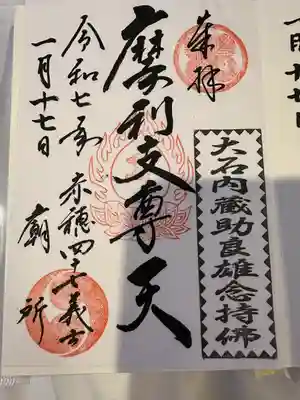 奉拝
大石内蔵助良雄念持佛
摩利支尊天
赤穂四十七義士
廟所
令和七年
一月十七日